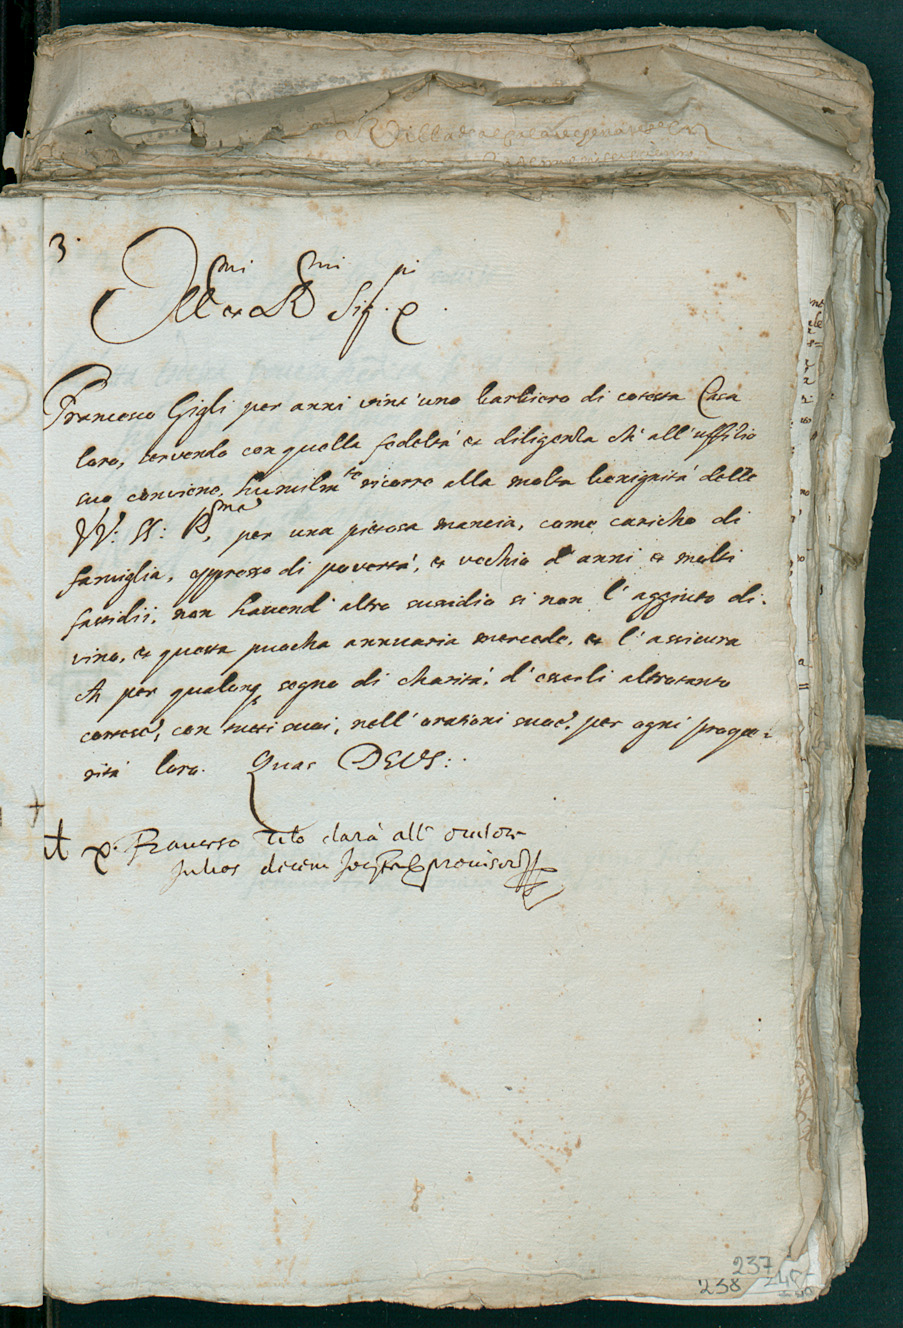 3.
Ill.mi et R.mi Sig.ri e
Francesco Gigli per anni vint'uno barbiero di cotesta Casa
loro, servendo con quella fedeltà et diligenza ch'all'uffitio
suo conviene, humilm.te ricorre alla molta benignità delle
VV. SS: R.me, per una pietosa mancia, come caricho di
famiglia, oppresso di povertà, et vechio d'anni et molti
fastidii, non havend'altro susidio si non l'aggiuto di-
vino, et questa puocha annuaria mercede, et l'assicura
ch per qualunq segno di charità, d'eserli altrotanto
cortese, con tutti suoi, nell'orationi suoe, per ogni prospe-
rità loro. Quas DEUS:
tito darà all' orator
Julios decem
237
238 240